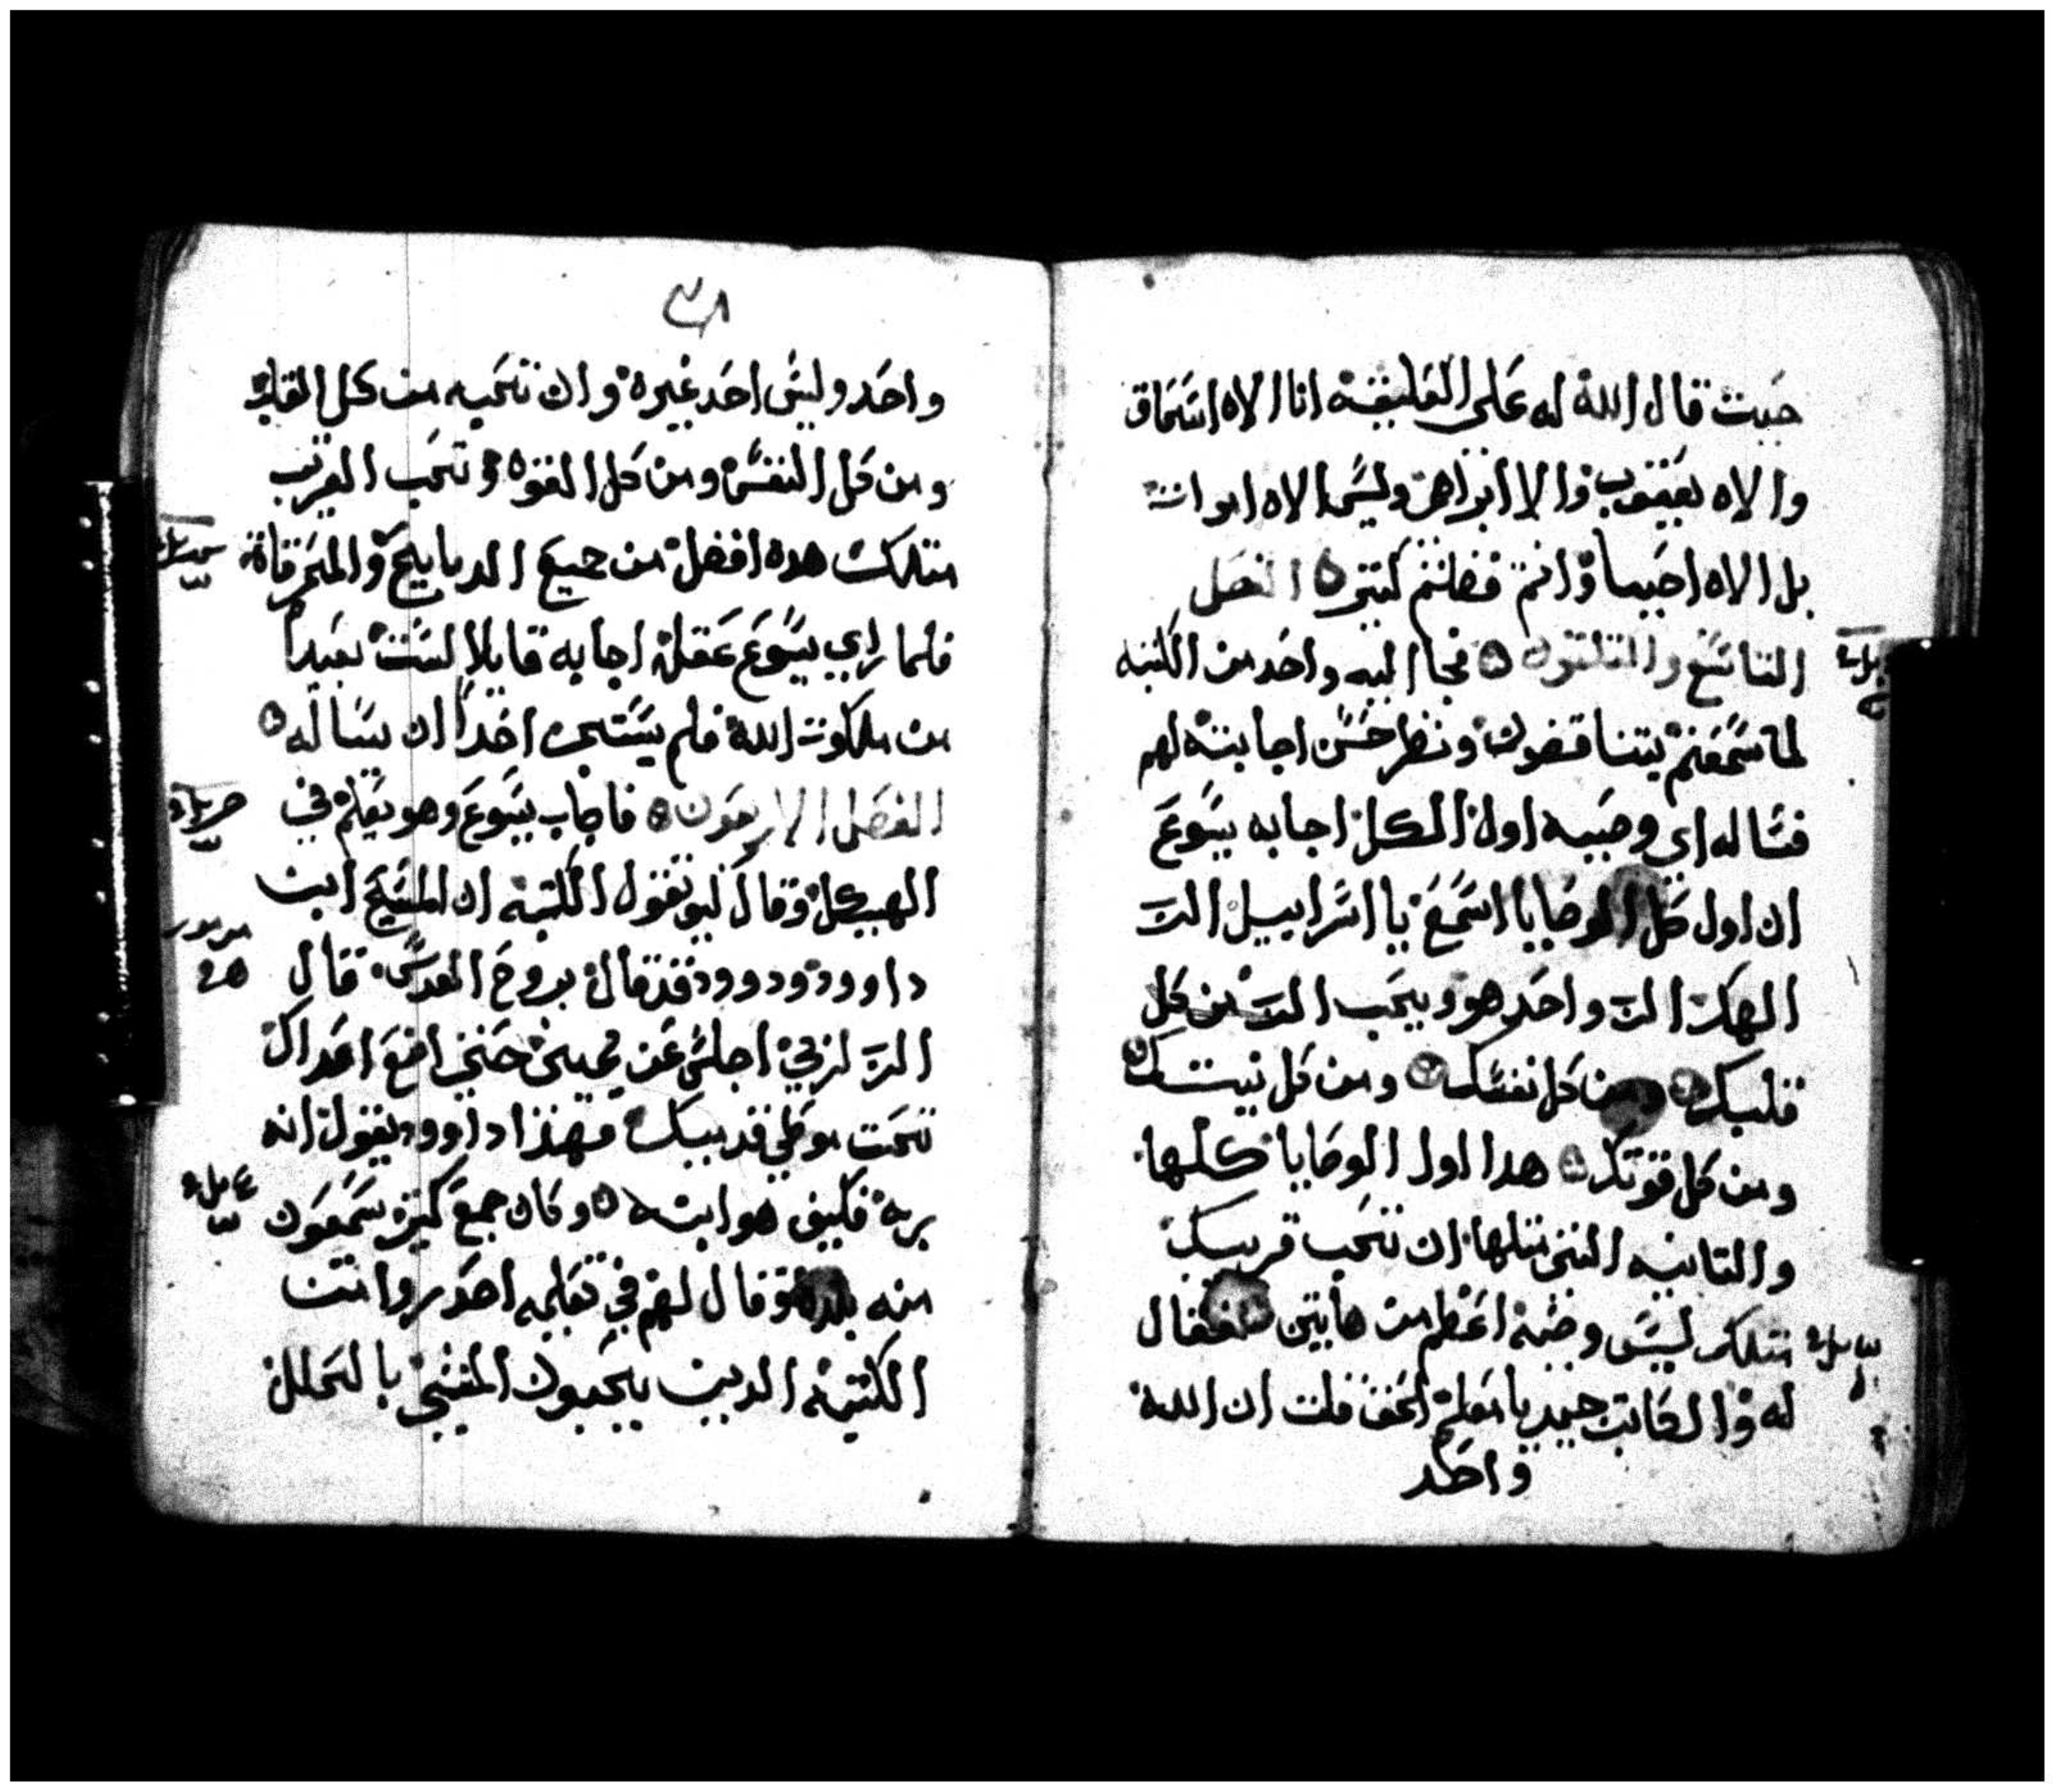 حيت قال الله له على العليقه انا الاه اسحاق
والاه يعقوب والا ابراهيم وليس الاه اموات
بل الاه احيا وانتم فضللتم كتير الفصل
التاسع والتلتون فجا اليه واحد من الكتبه
لما سمعهم يتناقضون ونظر حسن اجابته لهم
فساله اي وصيه اول الكل اجابه يسوع
ان اول كل الوصايا اسمع يا اسراييل الرب
الهك الرب واحد هو ويحب الرب من كل
قلبك ومن كل نفسك ومن كل نيتك
ومن كل قوتك هدا اول الوصايا كلها
والتانيه التي متلها ان تحب قريبك
متلك ليس وصيه اعظم من هاتين فقال
له والكاتب جيد يا معلم الحق قلت ان الله
واحد
واحد وليس احد غيره وان تحبه من كل القلب
ومن كل النفس ومن كل القوه وتحب القريب
متلك هده افضل من جميع الدبايح والمحرقات
فلما راي يسوع عقله اجابه قايلا لست بعيدا
من ملكوت الله فلم يستجر احدا ان يساله
الفصل الاربعون فاجاب يسوع وهو يعلم في
الهيكل وقال كيف تقول الكتبه ان المسيح ابن
داوود ودوود قد قال بروح القدس قال
الرب لربي اجلس عن يميني حتي اضع اعداك
تحت موطي قدميك فهذا داوود يقول انه
ربه فكيف هو ابنه وكان جمع كتير يسمعون
منه بلده وقال لهم في تعليمه احدروا من
الكتبه الدين يحبون المشي بالحلل